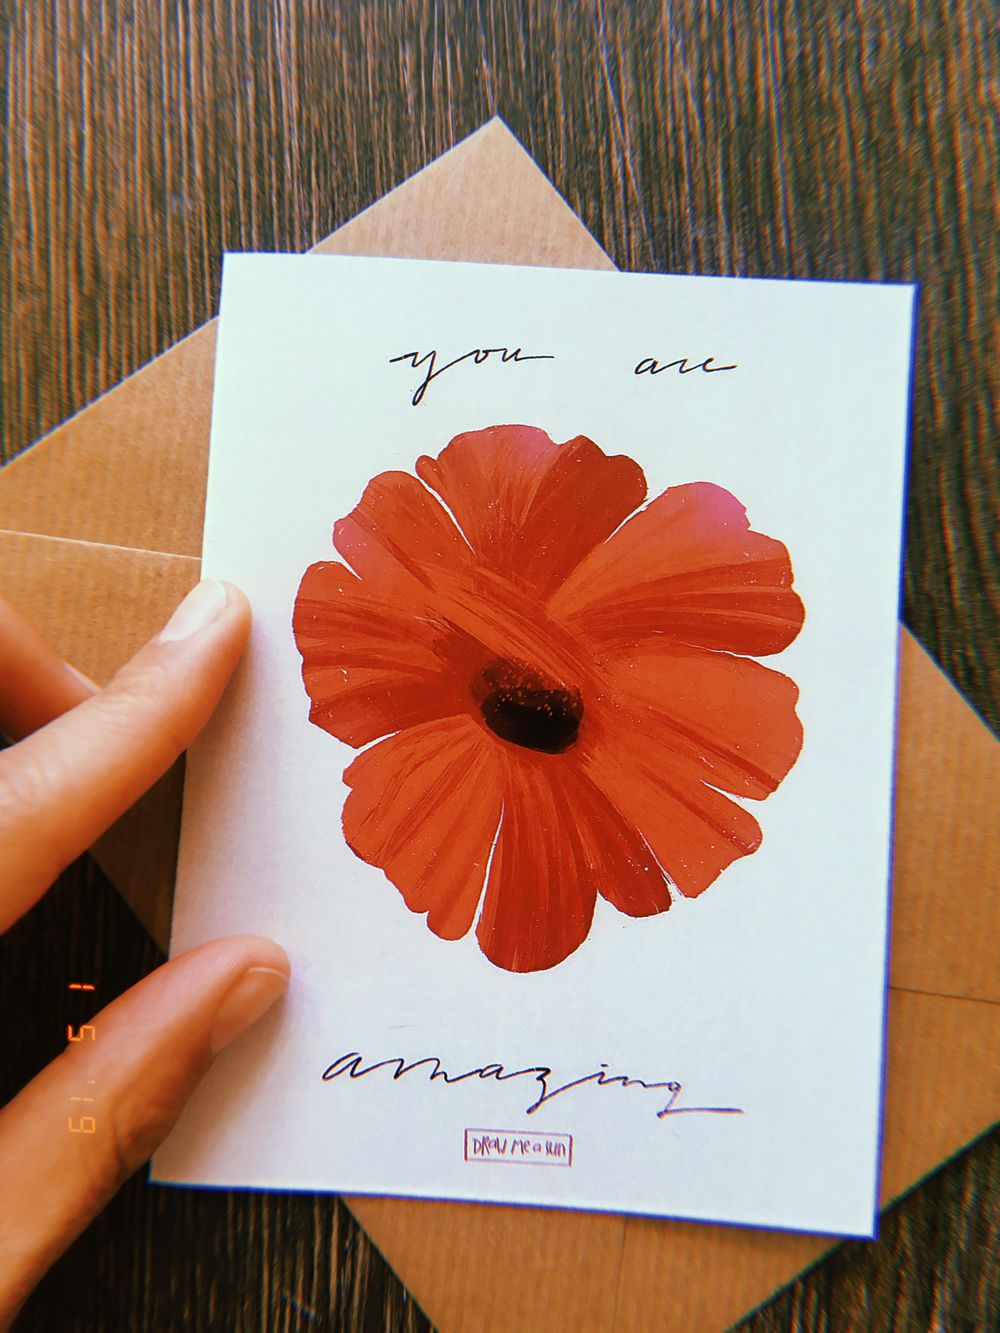 you are
amazing
DRAW Me a sun
1 5 '19